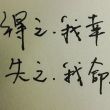 得之．我幸
失之．我命